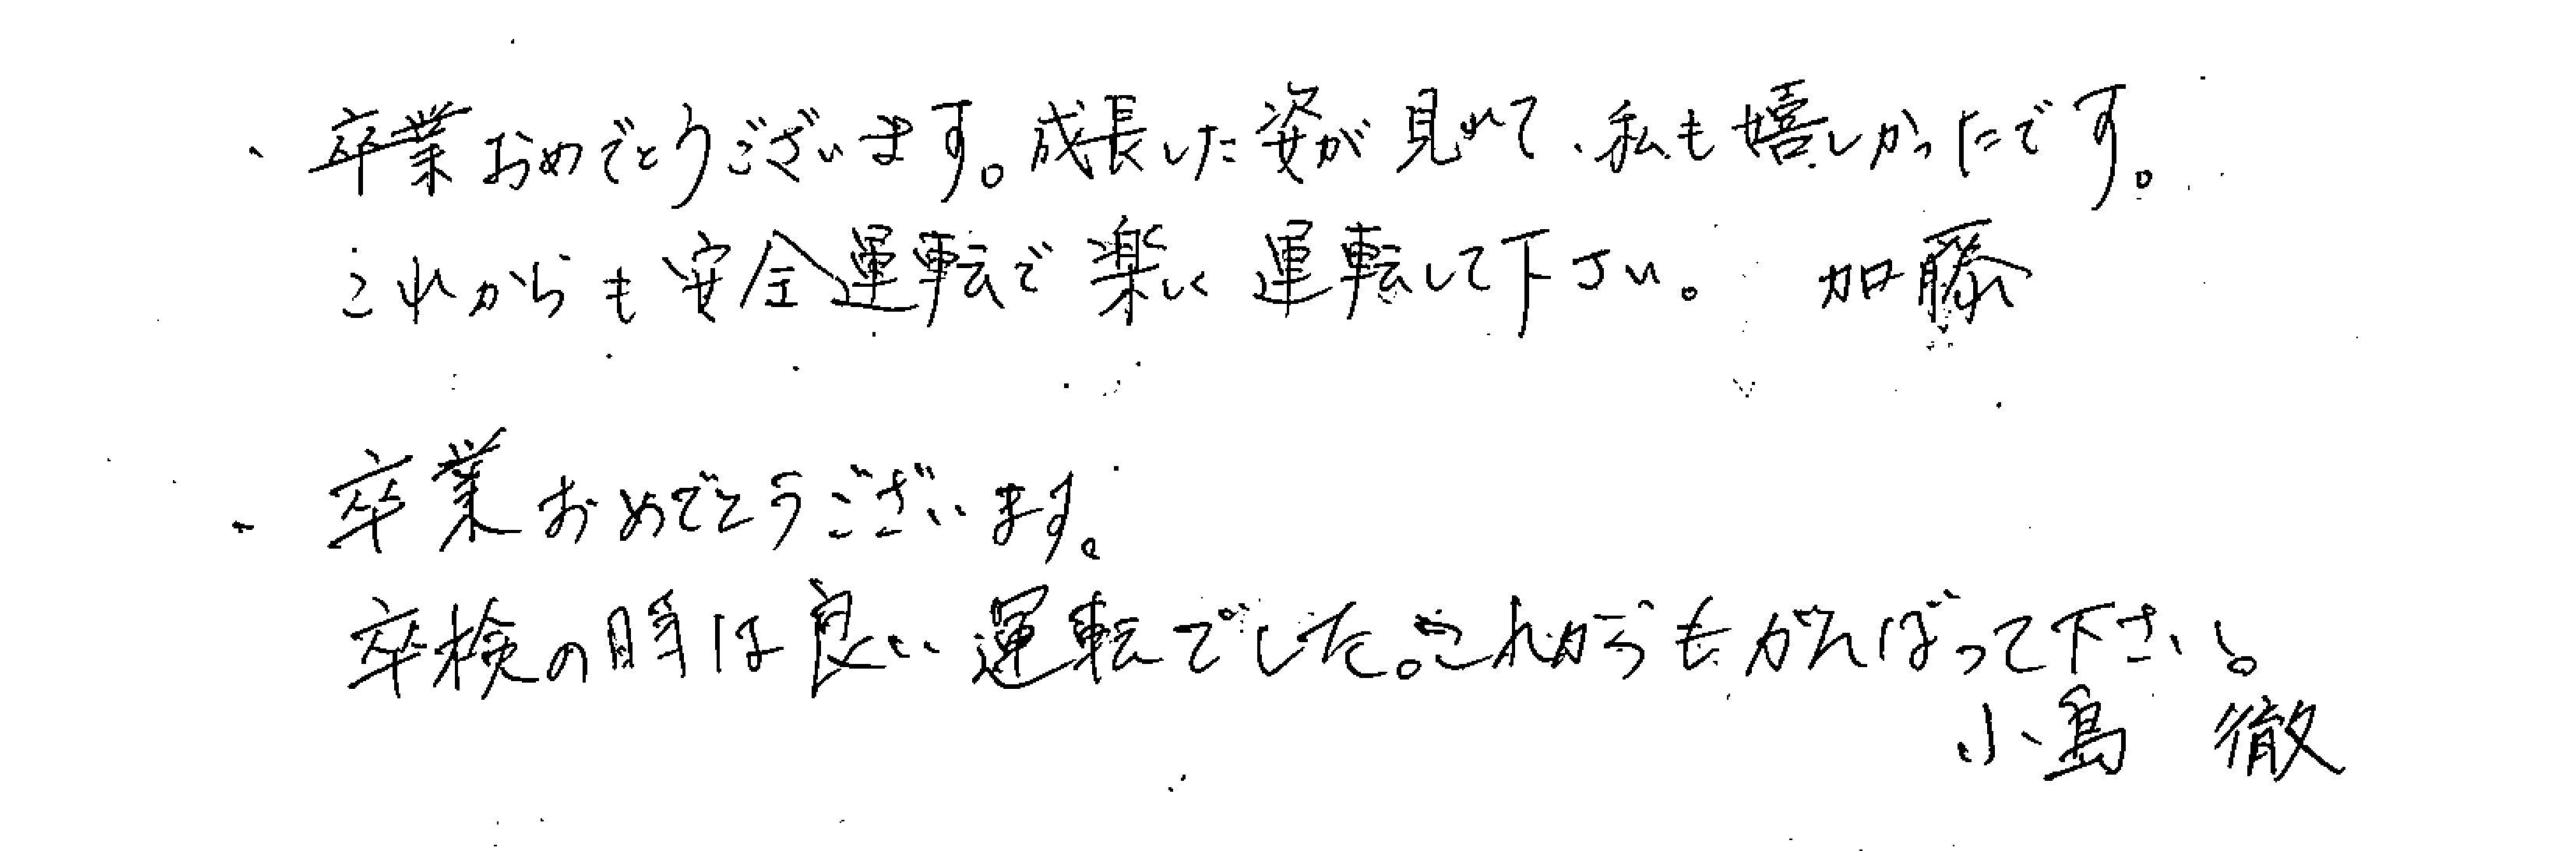 ・卒業おめでとうございます。成長した姿が見れて、私も嬉しかったです。
これからも安全運転で楽しく運転して下さい。 加藤
・卒業おめでとうございます。
卒検の時は良い運転でした。これからもがんばって下さい。
小島 徹